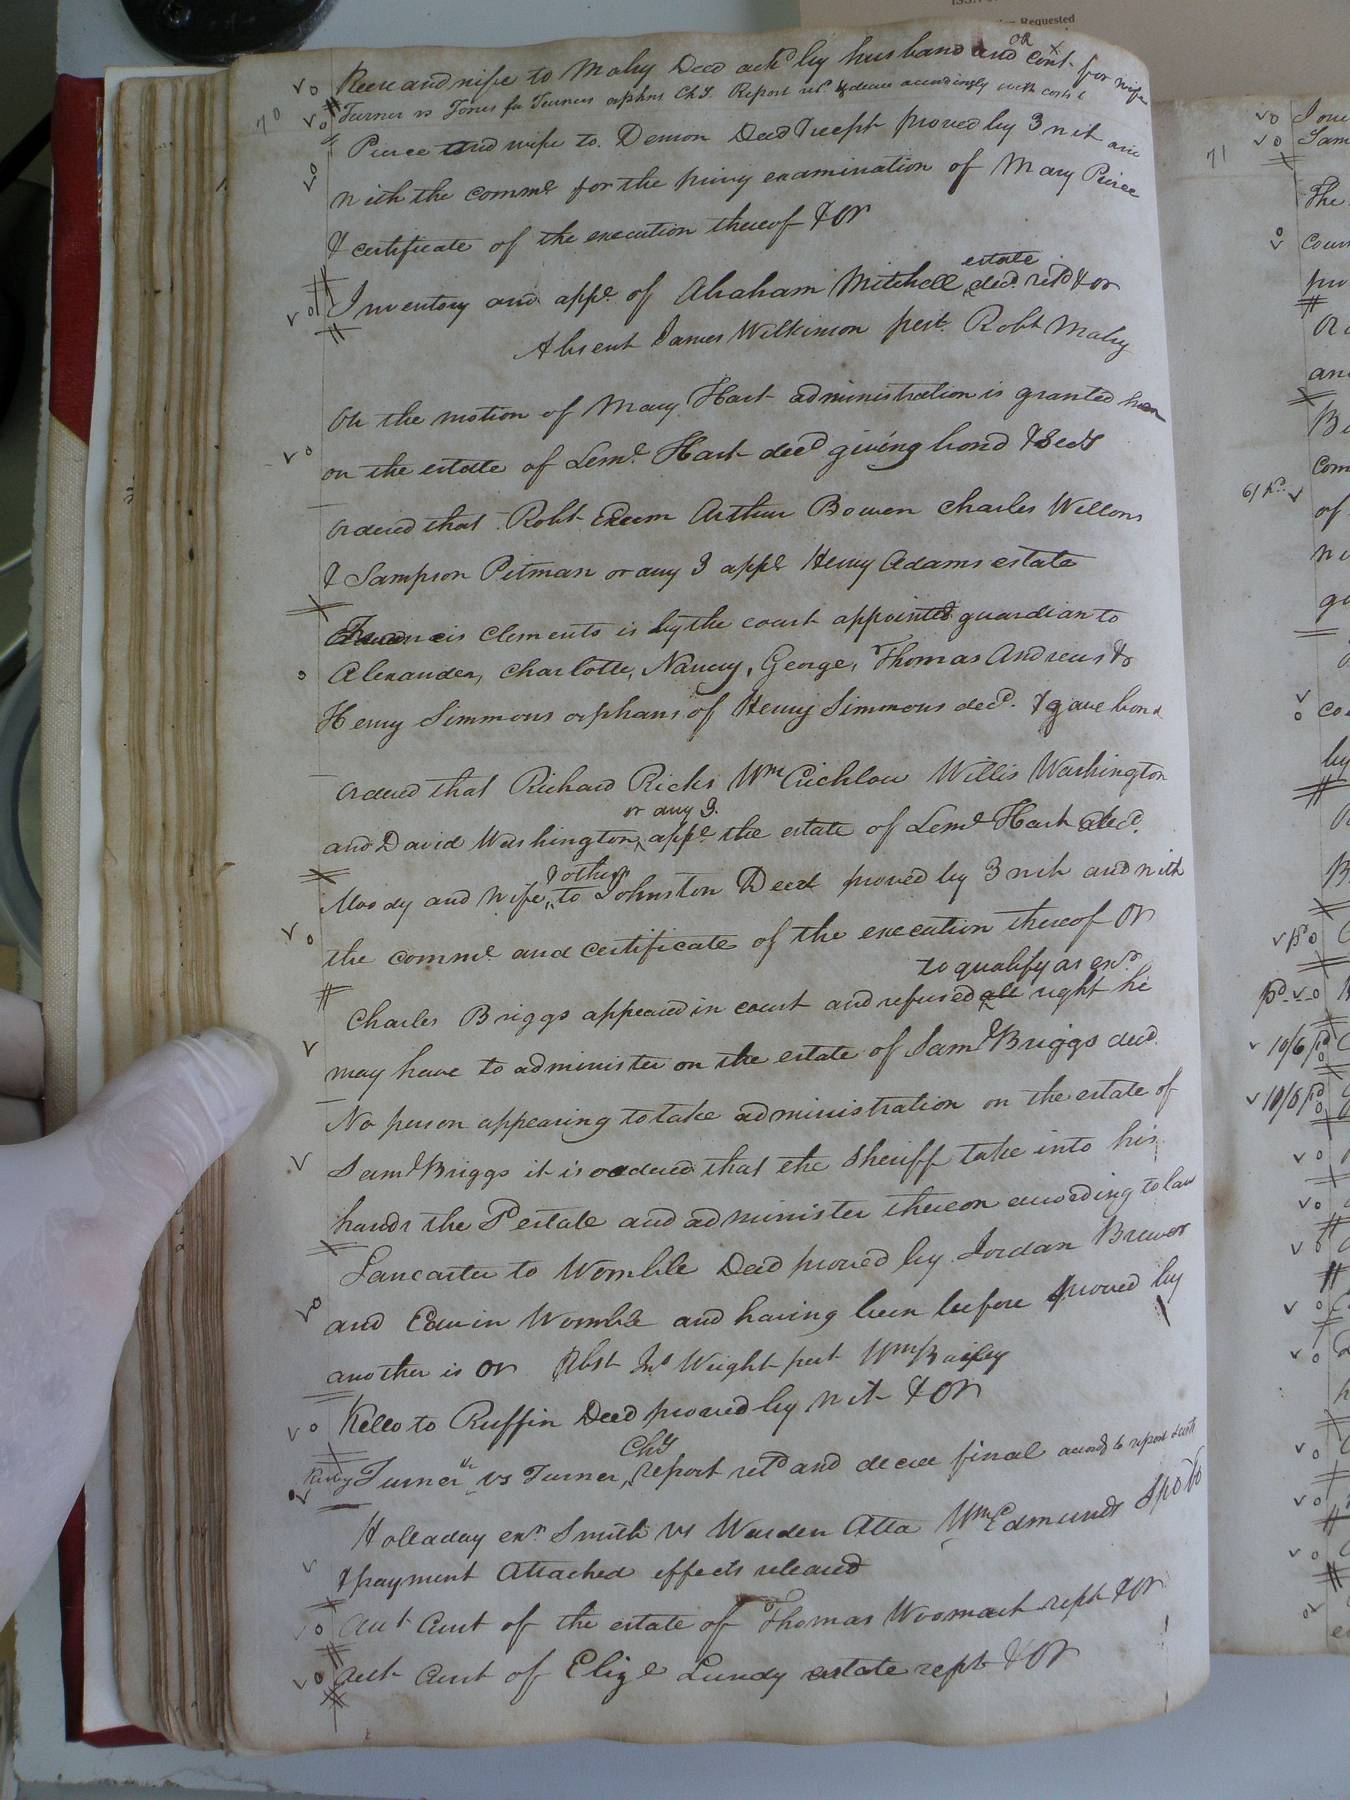 Requested
70
OR
Reese and wife to Maby Deed ackd by husband and cont for wife
Turner vs Jones for Turners orphns Chy. Report retd & decree accordingly with costs
Peirce and wife to Demon Deed & recpt proved by 3 wit and
with the commn for the privy examination of Mary Peirce
& certificate of the execution thereof & OR
estate
Inventory and appt of Abraham Mitchell decd. retd & or
Absent James Wilkinson pest. Robt Maby
On the motion of Mary Hart administration is granted her
on the estate of Leml Hart decd giving bond & Secy
Ordered that Robt Exum Arthur Bowen Charles Wellons
& Sampson Pitman or any 3 appe Henry Adams estate
Francis Clements is by the court appointed guardian to
Alexander, Charlotte, Nancy, George, Thomas Andrews &
Henry Simmons orphans of Henry Simmons decd. & gave bond
Ordered that Richard Ricks Wm Crichlow Willis Washington
or any 3.
and David Washington, appe the estate of Leml Hart decd.
& others
Moody and wife, to Johnston Deed proved by 3 wit and with
the commn and certificate of the execution thereof OR
to qualify as exr
Charles Briggs appeared in court and refused all right he
may have to administer on the estate of Saml Briggs decd.
No person appearing to take administration on the estate of
Saml Briggs it is ordered that the Sheriff take into his
hands the Sd estate and administer thereon according to law
Lancaster to Womble Deed proved by Jordan Brewer
and Edwin Womble and having been before proved by
another is OR Abst Jno Wright pest Wm Bailey
Kello to Ruffin Deed proved by wit & OR
Chy
Turner vs Turner, report retd and decree final accordg to report & costs
Holladay exr Smith vs Warden Atta Wm Edmunds Spo to
& payment Attached effects released
Aut Acnt of the estate of Thomas Woomack rept & OR
Aut Acnt of Eliz Lundy estate rept & OR
71
The
cour
and
com
of
by
pd
10/6 pd
10/6 pd